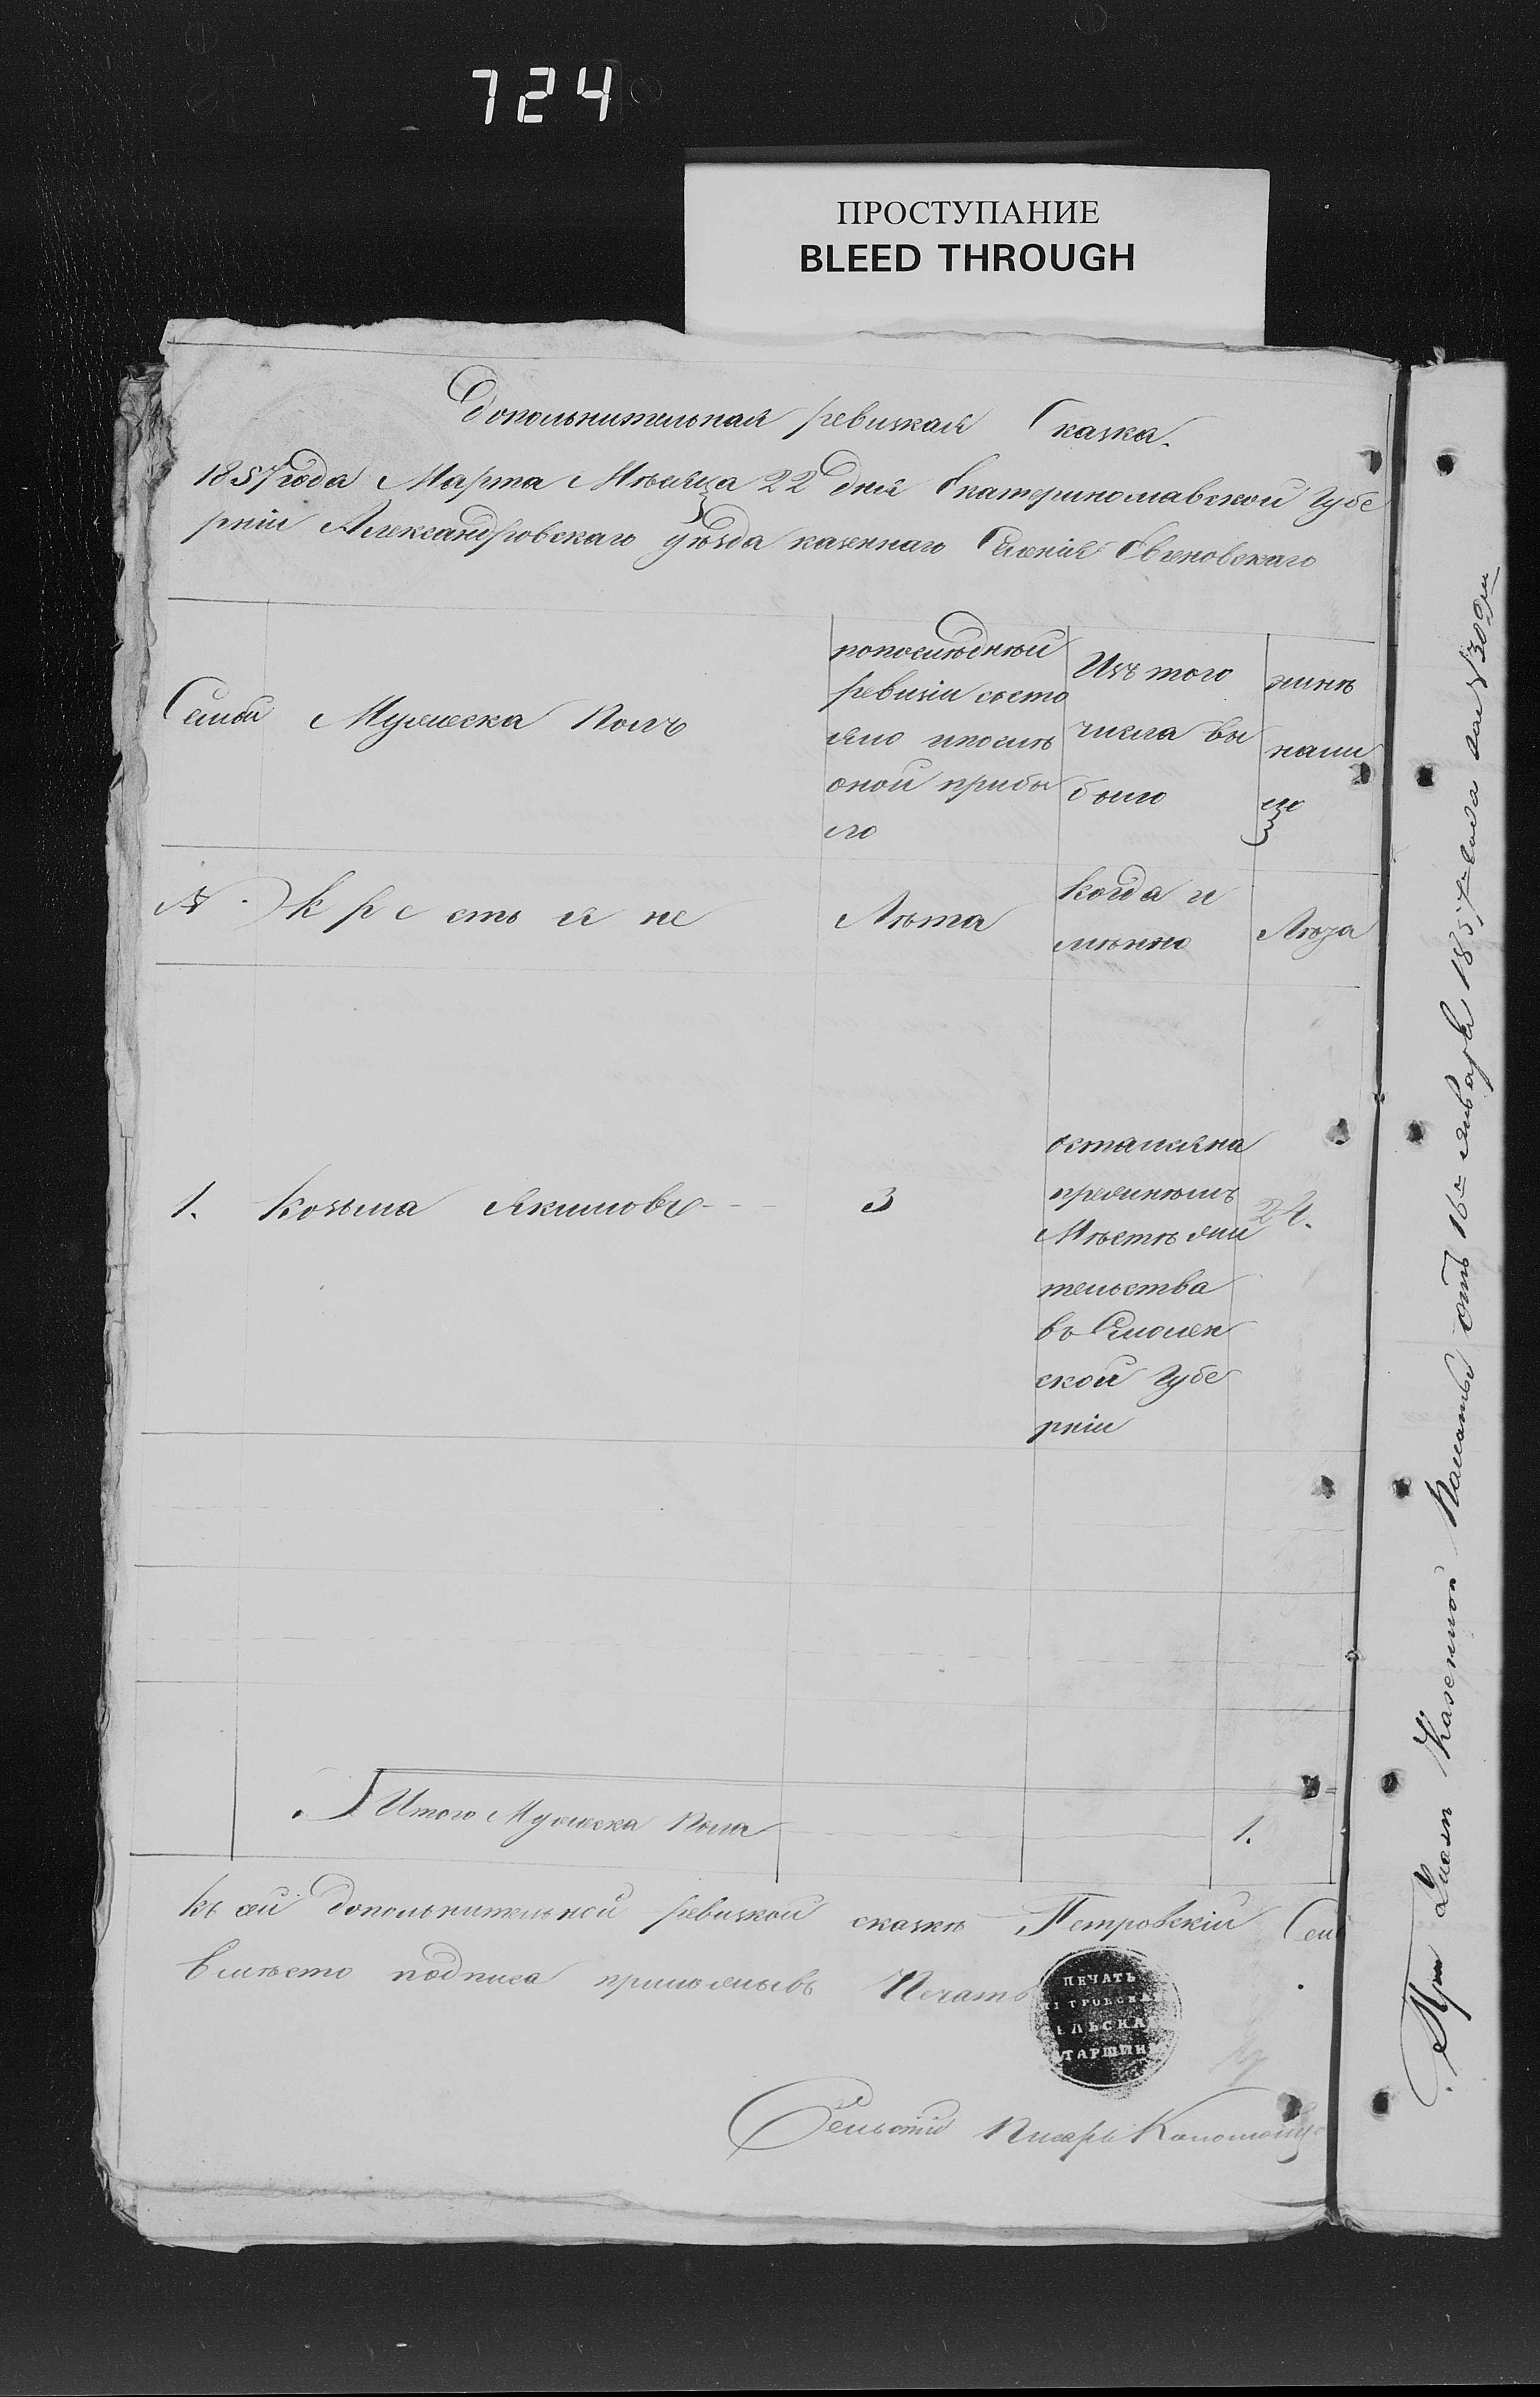 724
ПРОСТУПАНИЕ
BLEED THROUGH
Дополнительная ревизкая Сказка.
1857 года Марта Мѣсяца 22 дня Екатеринославской Губе
рніи Александровскаго уѣзда казеннаго Селенія
Семьи Мужеска Полъ
попослѣдней ревизіи состо яло ипослѣ оной прибы ло
Изъ того числа вы было
нинѣ нали цо
№ крестьяне
Лѣта
когда и мѣнно
Лѣта
1. Козьма Якимовъ
3
осталсяна прежнюмъ Мѣстѣ жи тельства въ Смолен ской Губе рніи
24.
Итого Мужеска Пола
1.
къ сей дополнительной ревизкой сказкѣ Петровскій Сель
вмѣсто подписа приложилъ Печать
ПЕЧАТЬ
ПЕТРОВСКА
ЕЛЬСКА
ТАРШИН
Сельскій Писарь
При Указѣ Казенной Палаты отъ 16го января 1857 года за № 30м